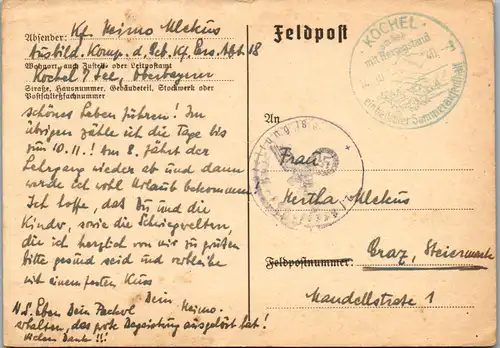 Absender: Kf. Heimo Mlekus
Ausbild. Komp. d. Geb. Kf. Ers. Abt. 18
Wohnort, auch Zustell- oder Leitpostamt
Kochel / See, Oberbayern
Straße, Hausnummer, Gebäudeteil, Stockwerk oder
Postschließfachnummer
schönes Leben führen! Im
übrigen zähle ich die Tage bis
zum 10.11.! Am 8. fährt der
Lehrgang wieder ab und dann
werde ich wohl Urlaub bekommen.
Ich hoffe, daß Du und die
Kinder, sowie die
die ich herzlich von mir zu grüßen
bitte gesund seid und verbleibe
mit einem festen Kuss
Dein Heimo.
N.S. Eben Dein Packerl
erhalten, das große Begeisterung ausgelöst hat!
Vielen Dank!!!
Feldpost
KOCHEL
mit Herzogstand
An
Frau
Hertha Mlekus
Graz, Steiermark
Feldpostnummer:
Mandellstraße 1